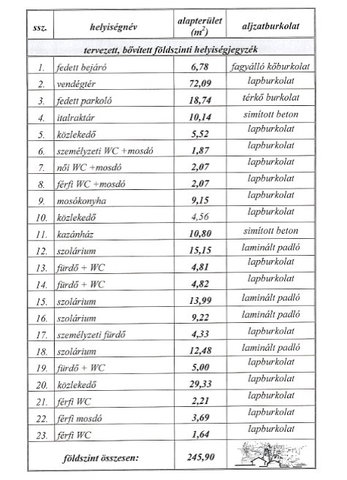 ssz. helyiségnév alapterület (m²) aljzatburkolat
tervezett, bővített földszinti helyiségjegyzék
1. fedett bejáró 6,78 fagyálló kőburkolat
2. vendégtér 72,09 lapburkolat
3. fedett parkoló 18,74 térkő burkolat
4. italraktár 10,14 simított beton
5. közlekedő 5,52 lapburkolat
6. személyzeti WC +mosdó 1,87 lapburkolat
7. női WC +mosdó 2,07 lapburkolat
8. férfi WC +mosdó 2,07 lapburkolat
9. mosókonyha 9,15 lapburkolat
10. közlekedő 4,56 lapburkolat
11. kazánház 10,80 simított beton
12. szolárium 15,15 laminált padló
13. fürdő + WC 4,81 lapburkolat
14. fürdő + WC 4,82 lapburkolat
15. szolárium 13,99 laminált padló
16. szolárium 9,22 laminált padló
17. személyzeti fürdő 4,33 lapburkolat
18. szolárium 12,48 laminált padló
19. fürdő + WC 5,00 lapburkolat
20. közlekedő 29,33 lapburkolat
21. férfi WC 2,21 lapburkolat
22. férfi mosdó 3,69 lapburkolat
23. férfi WC 1,64 lapburkolat
földszint összesen: 245,90